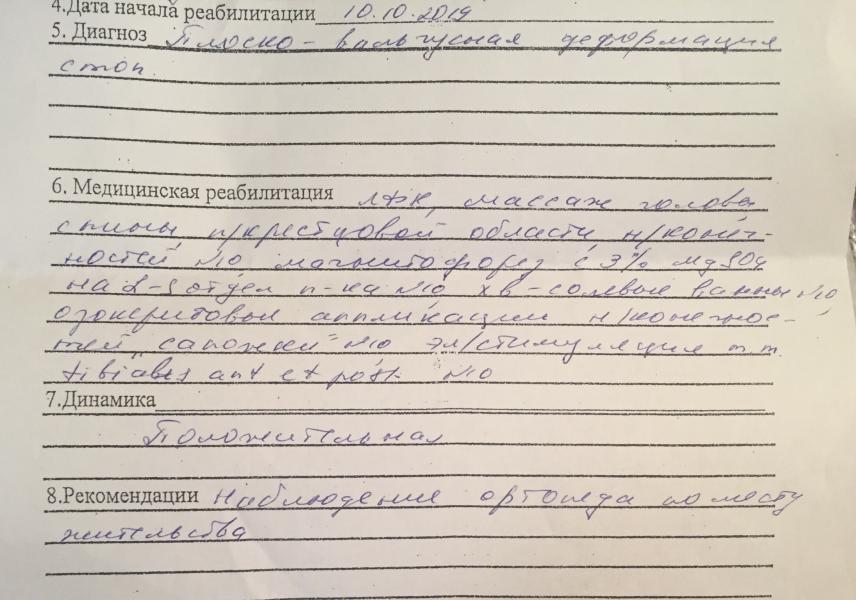 4.Дата начала реабилитации 10.10.2019
5. Диагноз Плоско-вальгусная деформация
стоп.
6. Медицинская реабилитация ЛФК, массаж голова
спины п/крестцовой области н/конеч-
ностей №10 магнитофорез с 3% MgSO4
на L-S отдел п-ка №10 хв-солевые ванны №10
озокеритовые аппликации н/конечнос-
тей "сапожки" №10 эл/стимуляция m.m.
tibiales ant et post №10
7.Динамика
Положительная
8.Рекомендации Наблюдение ортопеда по месту
жительства